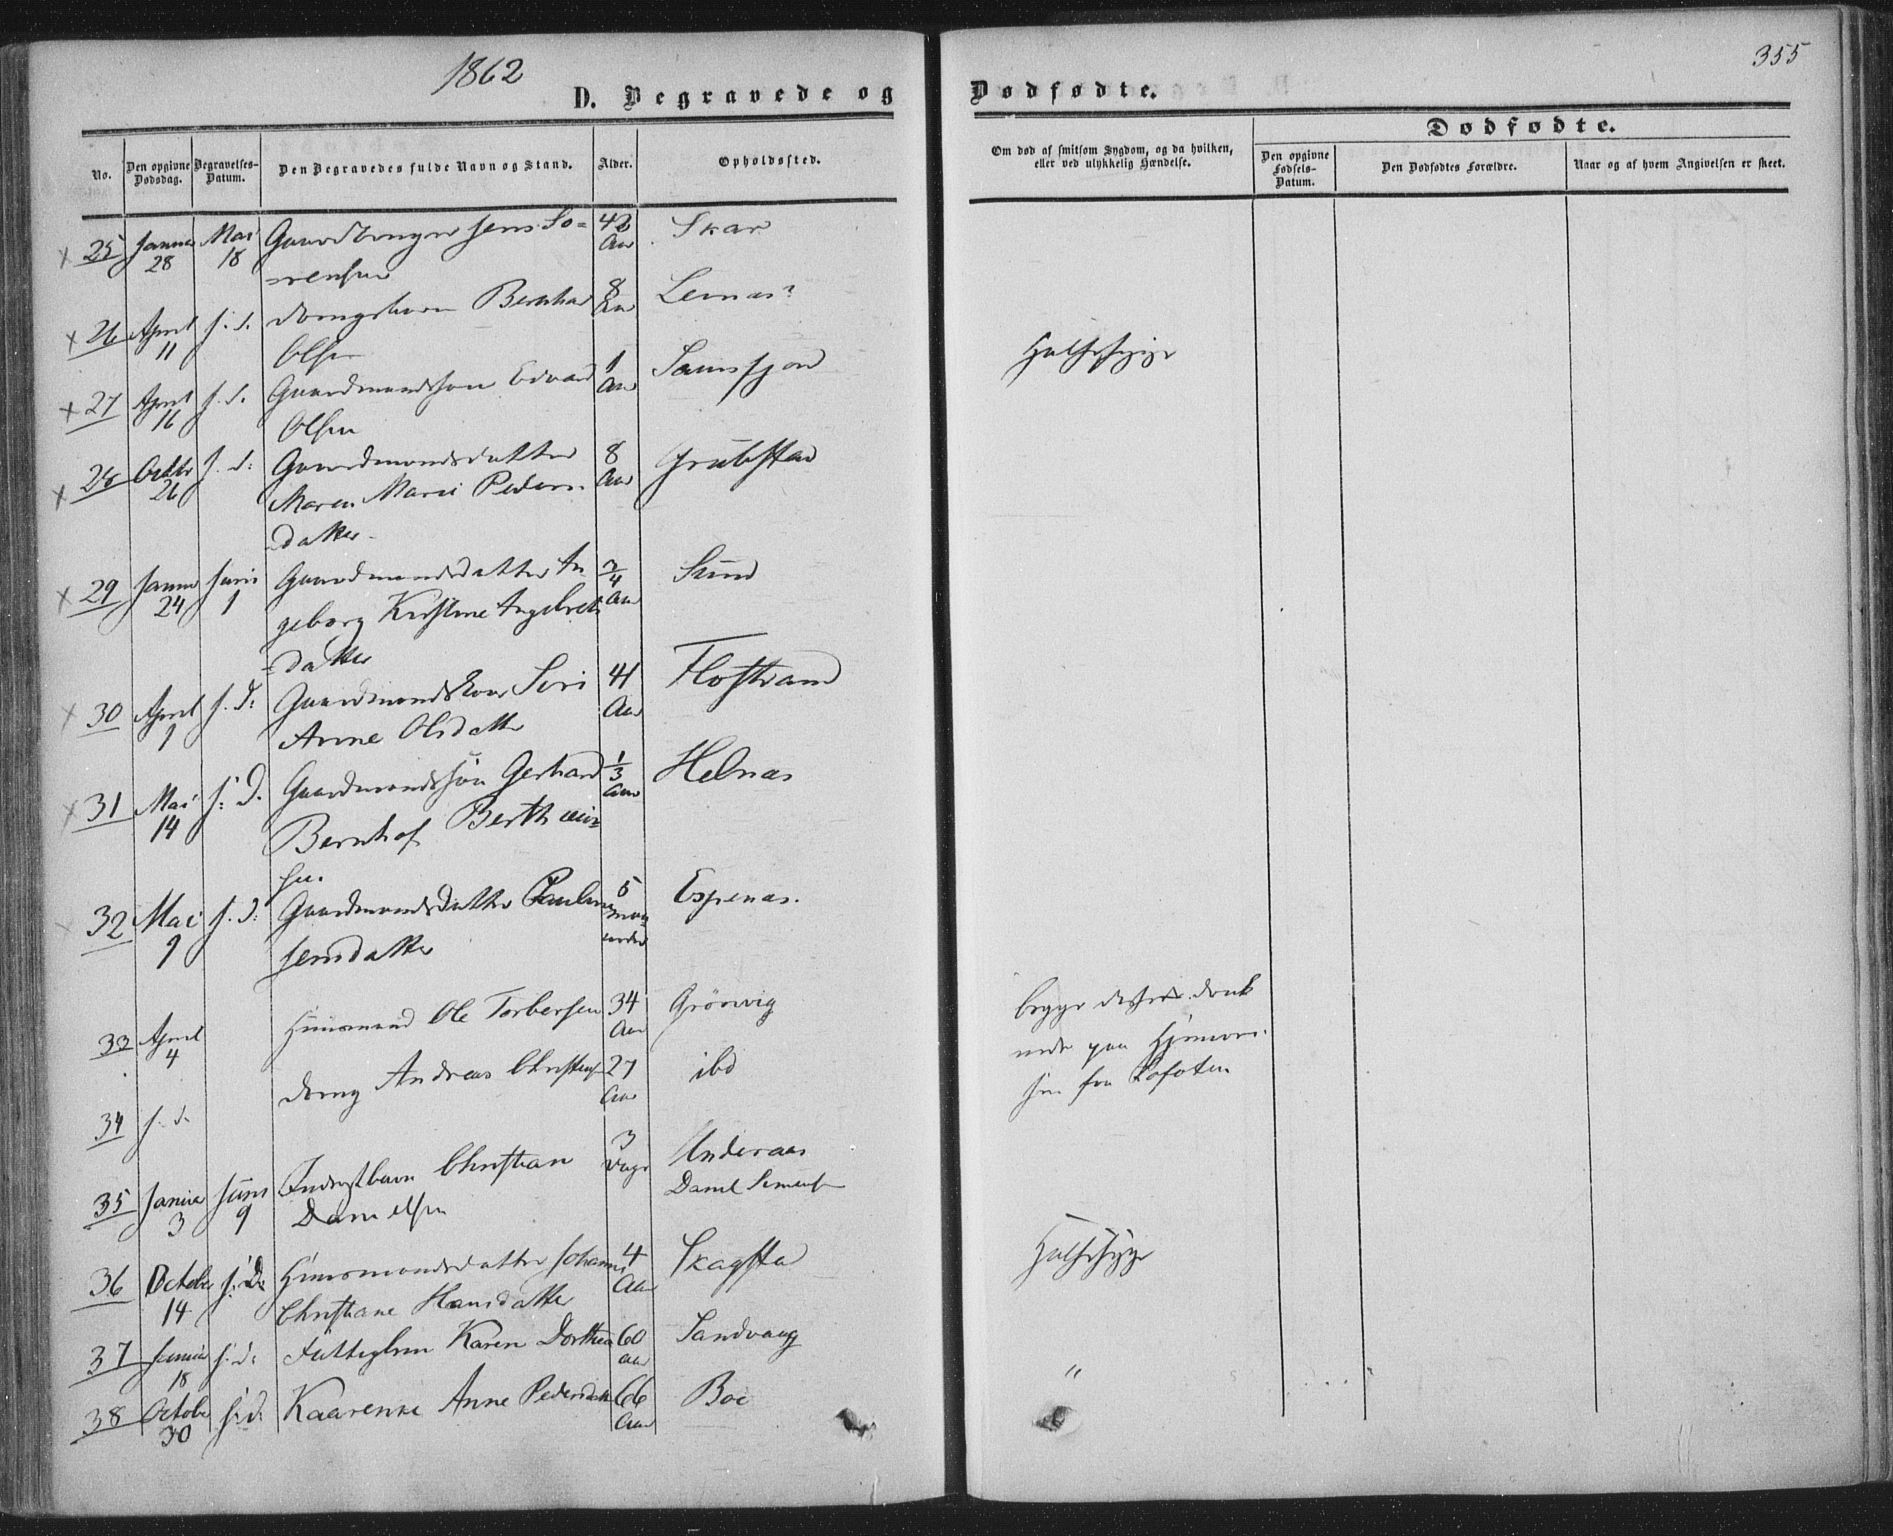 1862
355
D. Begravede og Dødfødte.
No.
Den opgivne Dødsdag.
Begravelses-Datum.
Den Begravedes fulde Navn og Stand.
Alder.
Opholdssted.
Om død af smitsom Sygdom, og da hvilken,
eller ved ulykkelig Hændelse.
Dødfødte.
Den opgivne Fødsels-Datum.
Den Dødfødtes Forældre.
Naar og af hvem Angivelsen er skeet.
25 Januar 28 Mai 18 Gaardbruger Jens So=
=rensen 42 Aar Skar
26 April 11 s. d. Drengebarn Bernhard
Olsen 8 Aar Lernæs Halssyge
27 April 16 s. d. Gaardmandssøn Edvard
Olsen 1 Aar
28 Octbr 26 s. d. Gaardmandsdatter
Maren Marie Peders-
datter 8 Aar Grubstad
29 Januar 24 Juni 1 Gaardmandsdatter In
geborg Kristine Ingebrets
=datter 3/4 Aar Sund
30 April 1 s. d. Gaardmandskone Siri
Anne Olsdatter 41 Aar Flostrand
31 Mai 14 s. d. Gaardmandssøn Gerhard
Bernhof
sen 1/3 Aar Helnæs
32 Mai 9 s. d. Gaardmandsdatter Pauline
Jensdatter 5 maaneder Espenæs.
33 April 4 Huusmand Ole Torbersen 34 Aar Grönvig
34 s. d. Dreng Andreas Christens 27 Aar ibd
begge disse druk
nede paa Hjemrei
sen fra Lofoten
35 Januar 3 Juni 9 Inderstbarn Christian
Danielsen 3 Dage Underaas
Daniel Simons
36 October 14 s. D. Huusmandsdatter Johanne
Christiane Hansdatter 4 Aar Skagstad Halssyge
37 Januar 18 s. d. Fattiglem Karen Dorthea 60 Aar Sandvaag "
38 October 30 s. d. Kaarenke Anne Pedersdatter 66 Aar Boe